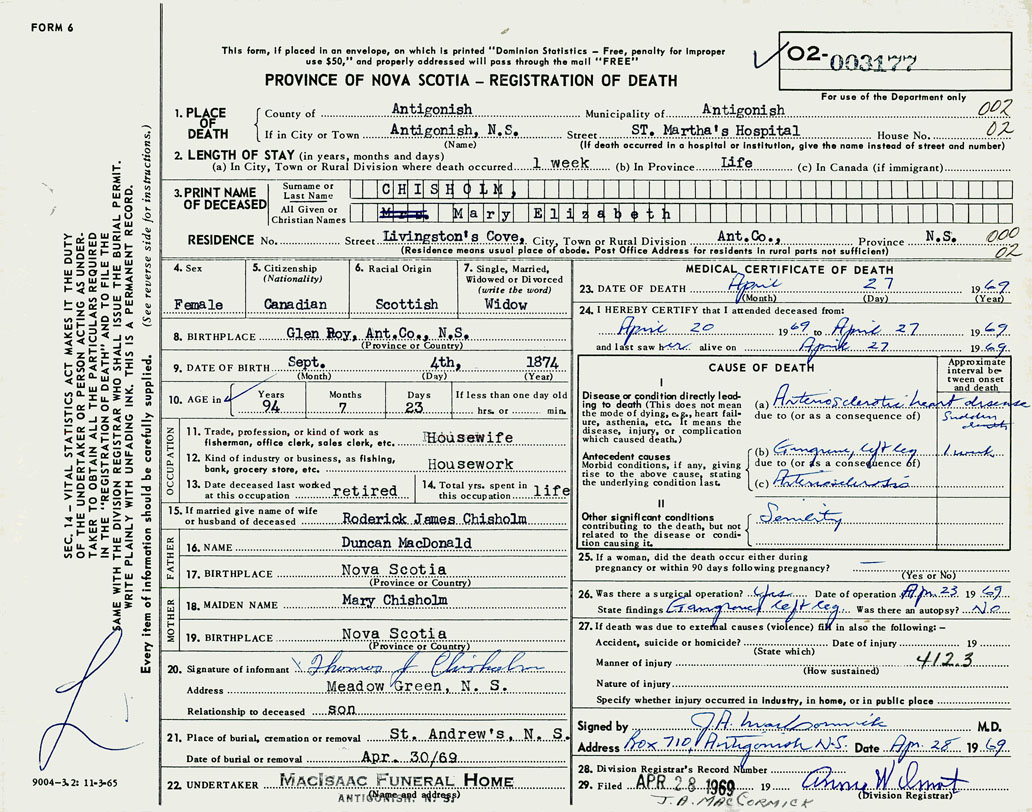 FORM 6
This form, if placed in an envelope, on which is printed "Dominion Statistics – Free, penalty for improper
use $50," and properly addressed will pass through the mail "FREE"
PROVINCE OF NOVA SCOTIA – REGISTRATION OF DEATH
02- 003177
For use of the Department only
1. PLACE OF DEATH County of Antigonish Municipality of Antigonish 002
If in City or Town Antigonish, N.S. Street ST. Martha's Hospital House No. 02
(Name) (If death occurred in a hospital or institution, give the name instead of street and number)
2. LENGTH OF STAY (in years, months and days)
(a) In City, Town or Rural Division where death occurred 1 week (b) In Province Life (c) In Canada (if immigrant)
3. PRINT NAME OF DECEASED Surname or Last Name CHISHOLM,
All Given or Christian Names Mrs. Mary Elizabeth
RESIDENCE No. Street Livingston's Cove, City, Town or Rural Division Ant.Co., Province N.S. 000
(Residence means usual place of abode. Post Office Address for residents in rural parts not sufficient) 02
4. Sex 5. Citizenship (Nationality) 6. Racial Origin 7. Single, Married, Widowed or Divorced (write the word)
Female Canadian Scottish Widow
8. BIRTHPLACE Glen Roy, Ant.Co., N.S.
(Province or Country)
9. DATE OF BIRTH Sept. 4th, 1874
(Month) (Day) (Year)
10. AGE in Years Months Days If less than one day old
94 7 23 hrs. or min.
OCCUPATION
11. Trade, profession, or kind of work as
fisherman, office clerk, sales clerk, etc. Housewife
12. Kind of industry or business, as fishing,
bank, grocery store, etc. Housework
13. Date deceased last worked at this occupation retired 14. Total yrs. spent in this occupation life
15. If married give name of wife
or husband of deceased Roderick James Chisholm
FATHER
16. NAME Duncan MacDonald
17. BIRTHPLACE Nova Scotia
(Province or Country)
MOTHER
18. MAIDEN NAME Mary Chisholm
19. BIRTHPLACE Nova Scotia
(Province or Country)
20. Signature of informant Thomas J Chisholm
Address Meadow Green, N. S.
Relationship to deceased son
21. Place of burial, cremation or removal St. Andrew's, N. S.
Date of burial or removal Apr. 30/69
22. UNDERTAKER MacIsaac Funeral Home
(Name and address)
ANTIGONISH, N. S.
MEDICAL CERTIFICATE OF DEATH
23. DATE OF DEATH April 27 1969
(Month) (Day) (Year)
24. I HEREBY CERTIFY that I attended deceased from:
April 20 1969 to April 27 1969
and last saw her alive on April 27 1969
CAUSE OF DEATH Approximate interval between onset and death
I
Disease or condition directly leading to death (This does not mean the mode of dying, e.g., heart failure, asthenia, etc. It means the disease, injury, or complication which caused death.)
(a) Arteriosclerotic heart disease
due to (or as a consequence of) Sudden death
Antecedent causes
Morbid conditions, if any, giving rise to the above cause, stating the underlying condition last.
(b) Gangrene, left leg 1 week
due to (or as a consequence of)
(c) Arteriosclerosis
II
Other significant conditions
contributing to the death, but not related to the disease or condition causing it.
Senility
25. If a woman, did the death occur either during
pregnancy or within 90 days following pregnancy? —
(Yes or No)
26. Was there a surgical operation? Yes Date of operation Apr. 23 1969
State findings Gangrene left leg Was there an autopsy? No
27. If death was due to external causes (violence) fill in also the following: –
Accident, suicide or homicide? Date of injury 19
(State which)
Manner of injury 412.3
(How sustained)
Nature of injury
Specify whether injury occurred in industry, in home, or in public place
Signed by J.A. MacCormick M.D.
Address Box 710, Antigonish N.S. Date Apr. 28 1969
28. Division Registrar's Record Number
29. Filed APR 28 1969 19
(Division Registrar)
J.A. MacCormick
SEC. 14 – VITAL STATISTICS ACT MAKES IT THE DUTY
OF THE UNDERTAKER OR PERSON ACTING AS UNDER-
TAKER TO OBTAIN ALL THE PARTICULARS REQUIRED
IN THE "REGISTRATION OF DEATH" AND TO FILE THE
SAME WITH THE DIVISION REGISTRAR WHO SHALL ISSUE THE BURIAL PERMIT.
WRITE PLAINLY WITH UNFADING INK. THIS IS A PERMANENT RECORD.
Every item of information should be carefully supplied. (See reverse side for instructions.)
9004-3.2: 11-3-65